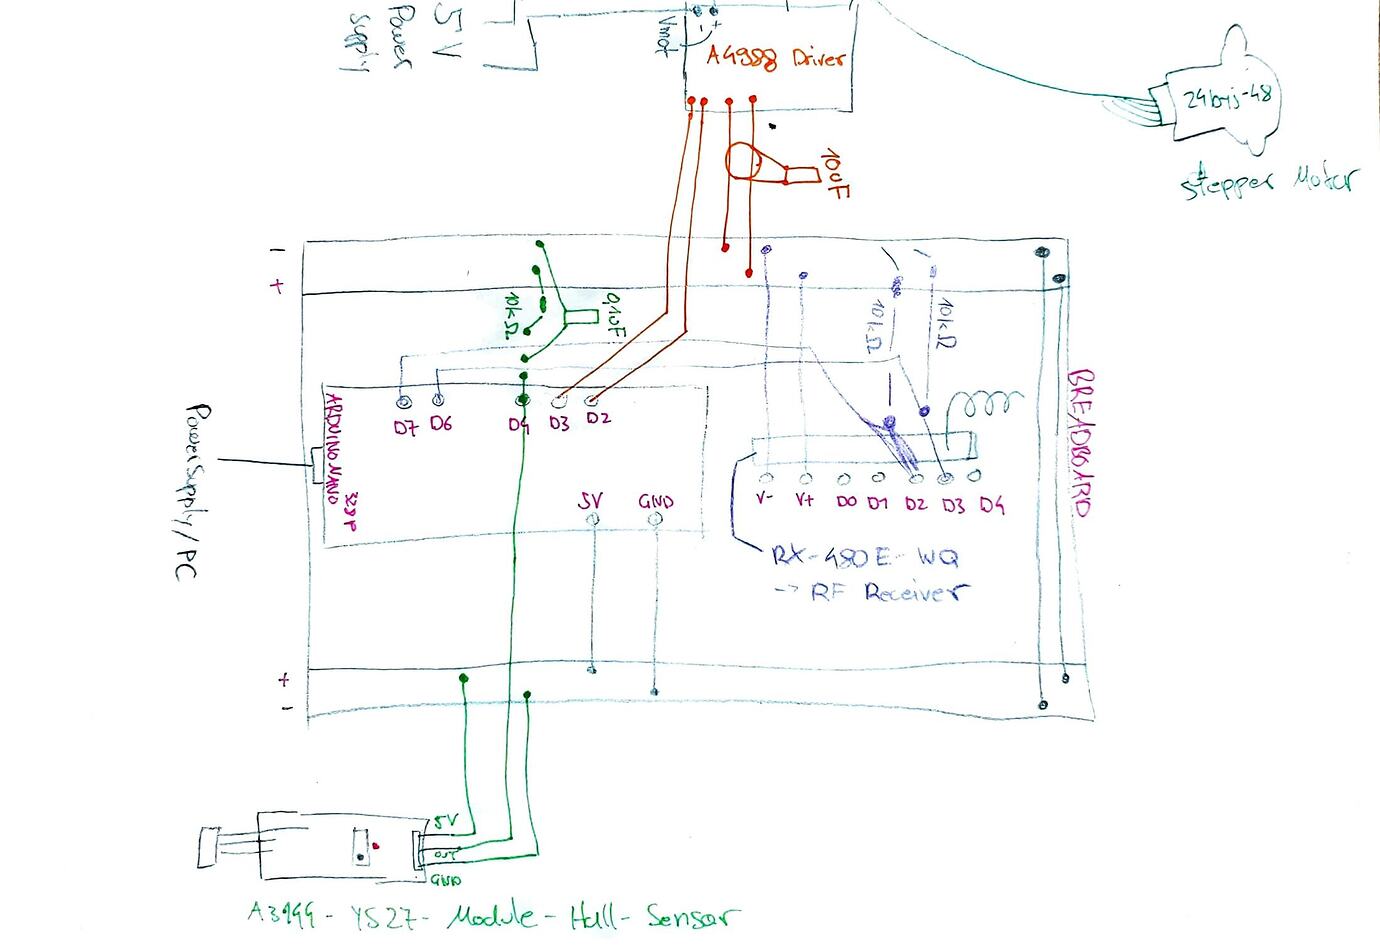 5V
Power
Supply
Vmot
-
+
A4988 Driver
24byj-48
Stepper Motor
10uF
-
+
10kΩ
0,1uF
10kΩ
10kΩ
BREADBOARD
Power Supply / PC
ARDUINO NANO
328P
D7 D6 D4 D3 D2
5V GND
V- V+ D0 D1 D2 D3 D4
RX-480E-WQ
-> RF Receiver
+
-
5V
OUT
GND
A3144-YS27-Module-Hall-Sensor